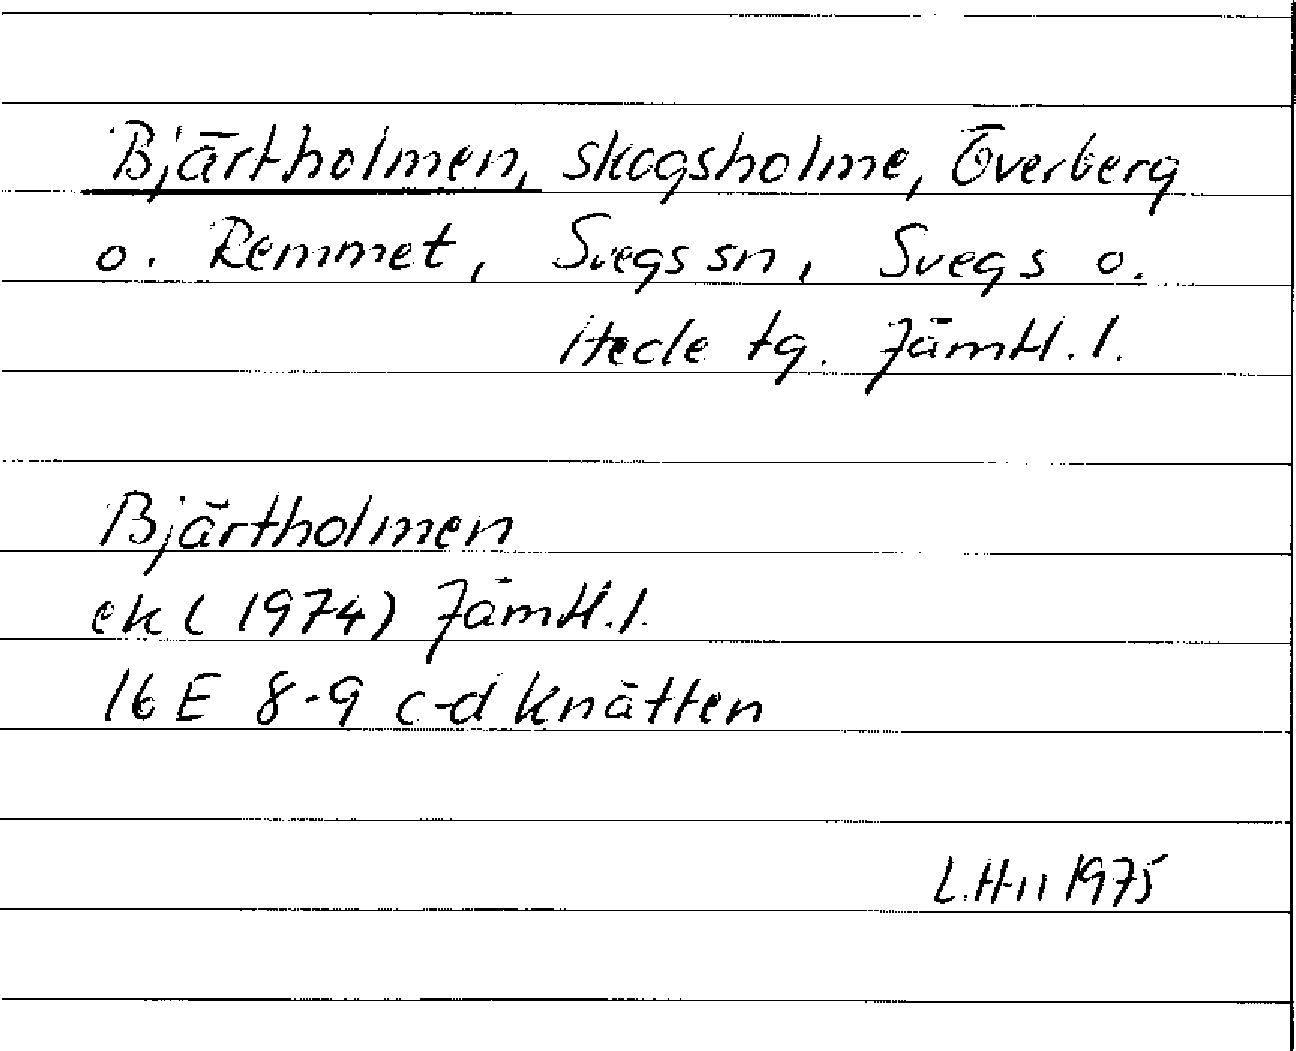 Bjärtholmen, skogsholme, Överberg
o. Remmet, Svegs sn, Svegs o.
Hede tg. Jämtl. l.
Bjärtholmen
ek (1974) Jämtl. l.
16 E 8-9 c-d Knätten
L.H-n 1975